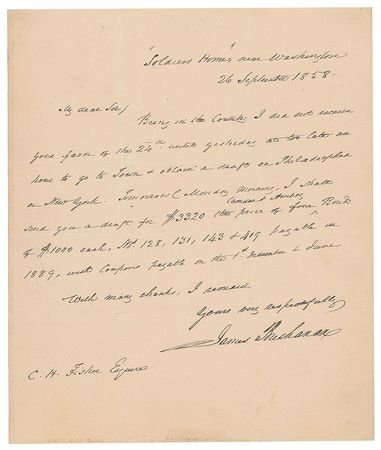 "Soldiers Home" near Washington
26 September 1858.
My dear Sir/
Being in the Country I did not receive
your favor of the 24th until yesterday at too late an
hour to go to Town & obtain a draft on Philadelphia
or New York. Tomorrow (Monday) morning, I shall
Camden & Amboy
send you a draft for $3320 the price of four Bonds
of $1000 each, Nos 128, 131, 143 & 419 payable in
1889, with Coupons payable on the 1st December & June
With many thanks, I remain
Yours very respectfully
James Buchanan
C. H. Fisher Esquire